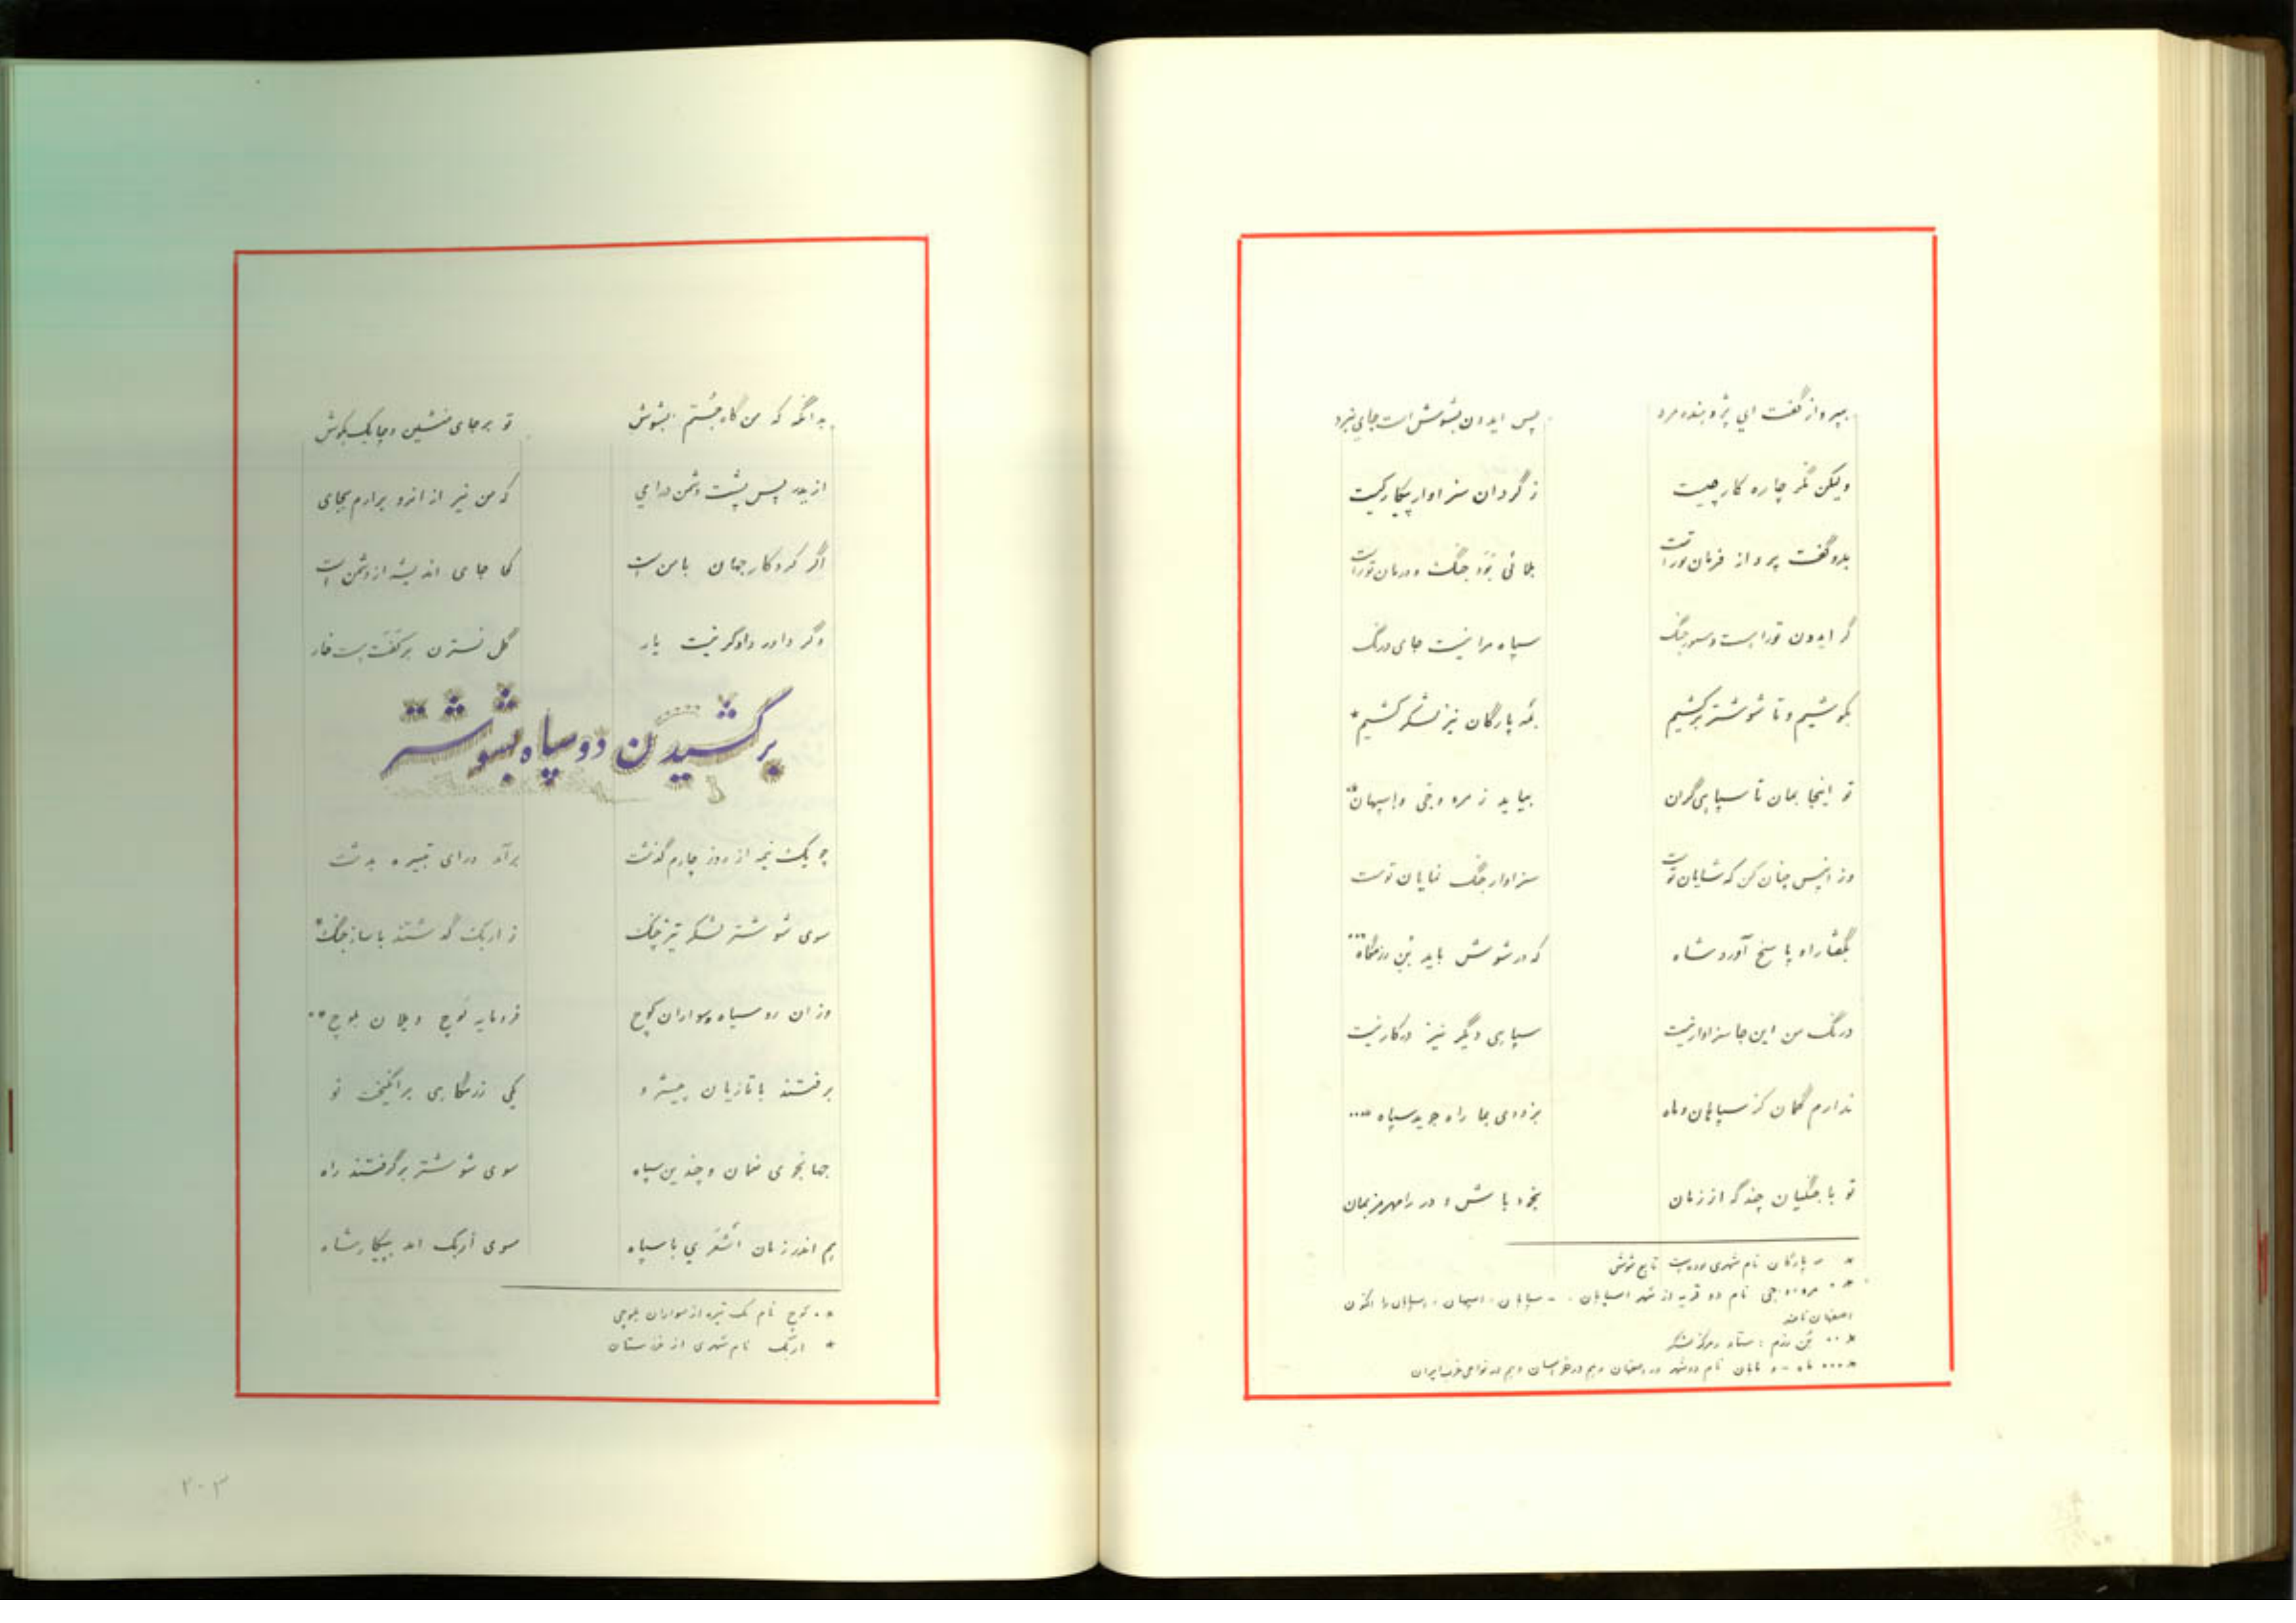 بپرواز گفت ای پژوهنده مرد    پس ایدون بشوش است جای نبرد
ولیکن نگر چاره کار چیست    ز گردان سزاوار پیکار کیست
بدو گفت پرواز فرمان توراست    بلائی بود جنگ و درمان توراست
گر ایدون تورا هست دستور جنگ    سپاه مرا نیست جای درنگ
بکوشیم و تا شوشتر برکشیم    بمه پارگان نیز لشکر کشیم *
تو اینجا بمان تا سپاهی گران    بیاید ز مره و جی و اسپهان **
وز آنپس چنان کن که شایان توست    سزاوار جنگ نمایان توست
بگفتار او پاسخ آورد شاه    که در شوش باید بُنِ رزمگاه ***
درنگ من این جا سزاوار نیست    سپاهی دیگر نیز درکار نیست
ندارم گمان کز سپاهان و ماه    بزودی بما راه جوید سپاه ****
تو با جنگیان چند گه از زمان    بخود باش و در رامهرمز بمان
* مه پارگان نام شهری بوده است تابع شوش
** مره و جی نام دو قریه از شهر اسپاهان - سپاهان - اسپهان - اسپاهان را اکنون
اصفهان نامند
*** بُن رزم : ستاد و مرکز لشکر
**** ماه - و ماهان نام دو شهر در اصفهان و هم در خراسان و هم در نواحی غرب ایران
بدانگه که من گاه جُستم بشوش    تو برجای منشین و چابک بکوش
از ایدر پس پشت دشمن درآی    که من نیز از انرو برآرم بجای
اگر کردگار جهان با من است    کجا جای اندیشه از دشمن است
وگر داور دادگر نیست یار    گل نسترن برکفت هست خار
برکشیدن دو سپاه بشوشتر
چو یک نیمه از روز چارم گذشت    برآمد درای تبیره بدشت
سوی شوشتر لشکر تیز چنگ    ز اربک گذشتند با ساز جنگ *
وز ان رو سپاه و سواران کوچ    فرومایه کوچ و یلان بلوچ **
برفتند با تازیان پیشرو    یکی رزمگاهی برانگیخت نو
جهانجوی نعمان و چندین سپاه    سوی شوشتر برگرفتند راه
هم اندر زمان اشعری با سپاه    سوی اربک آمد بپیکار شاه
** کوچ نام یک تیره از سواران بلوچی
* اربک نام شهری از خوزستان
۲۰۳